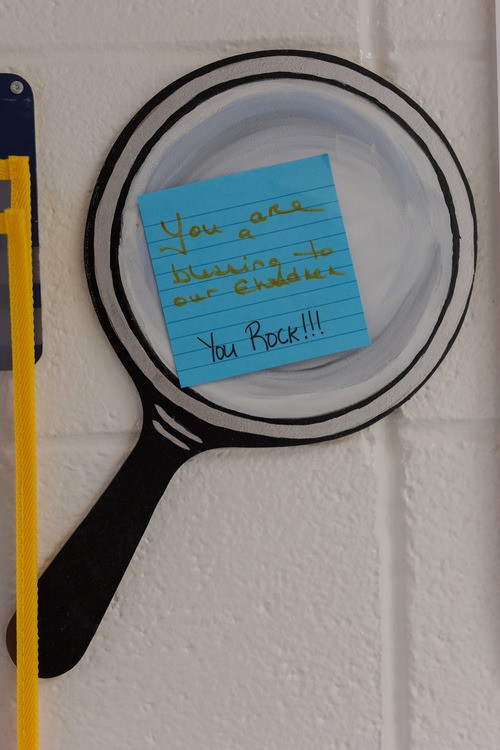 You are
a
blessing to
our Children
You Rock!!!